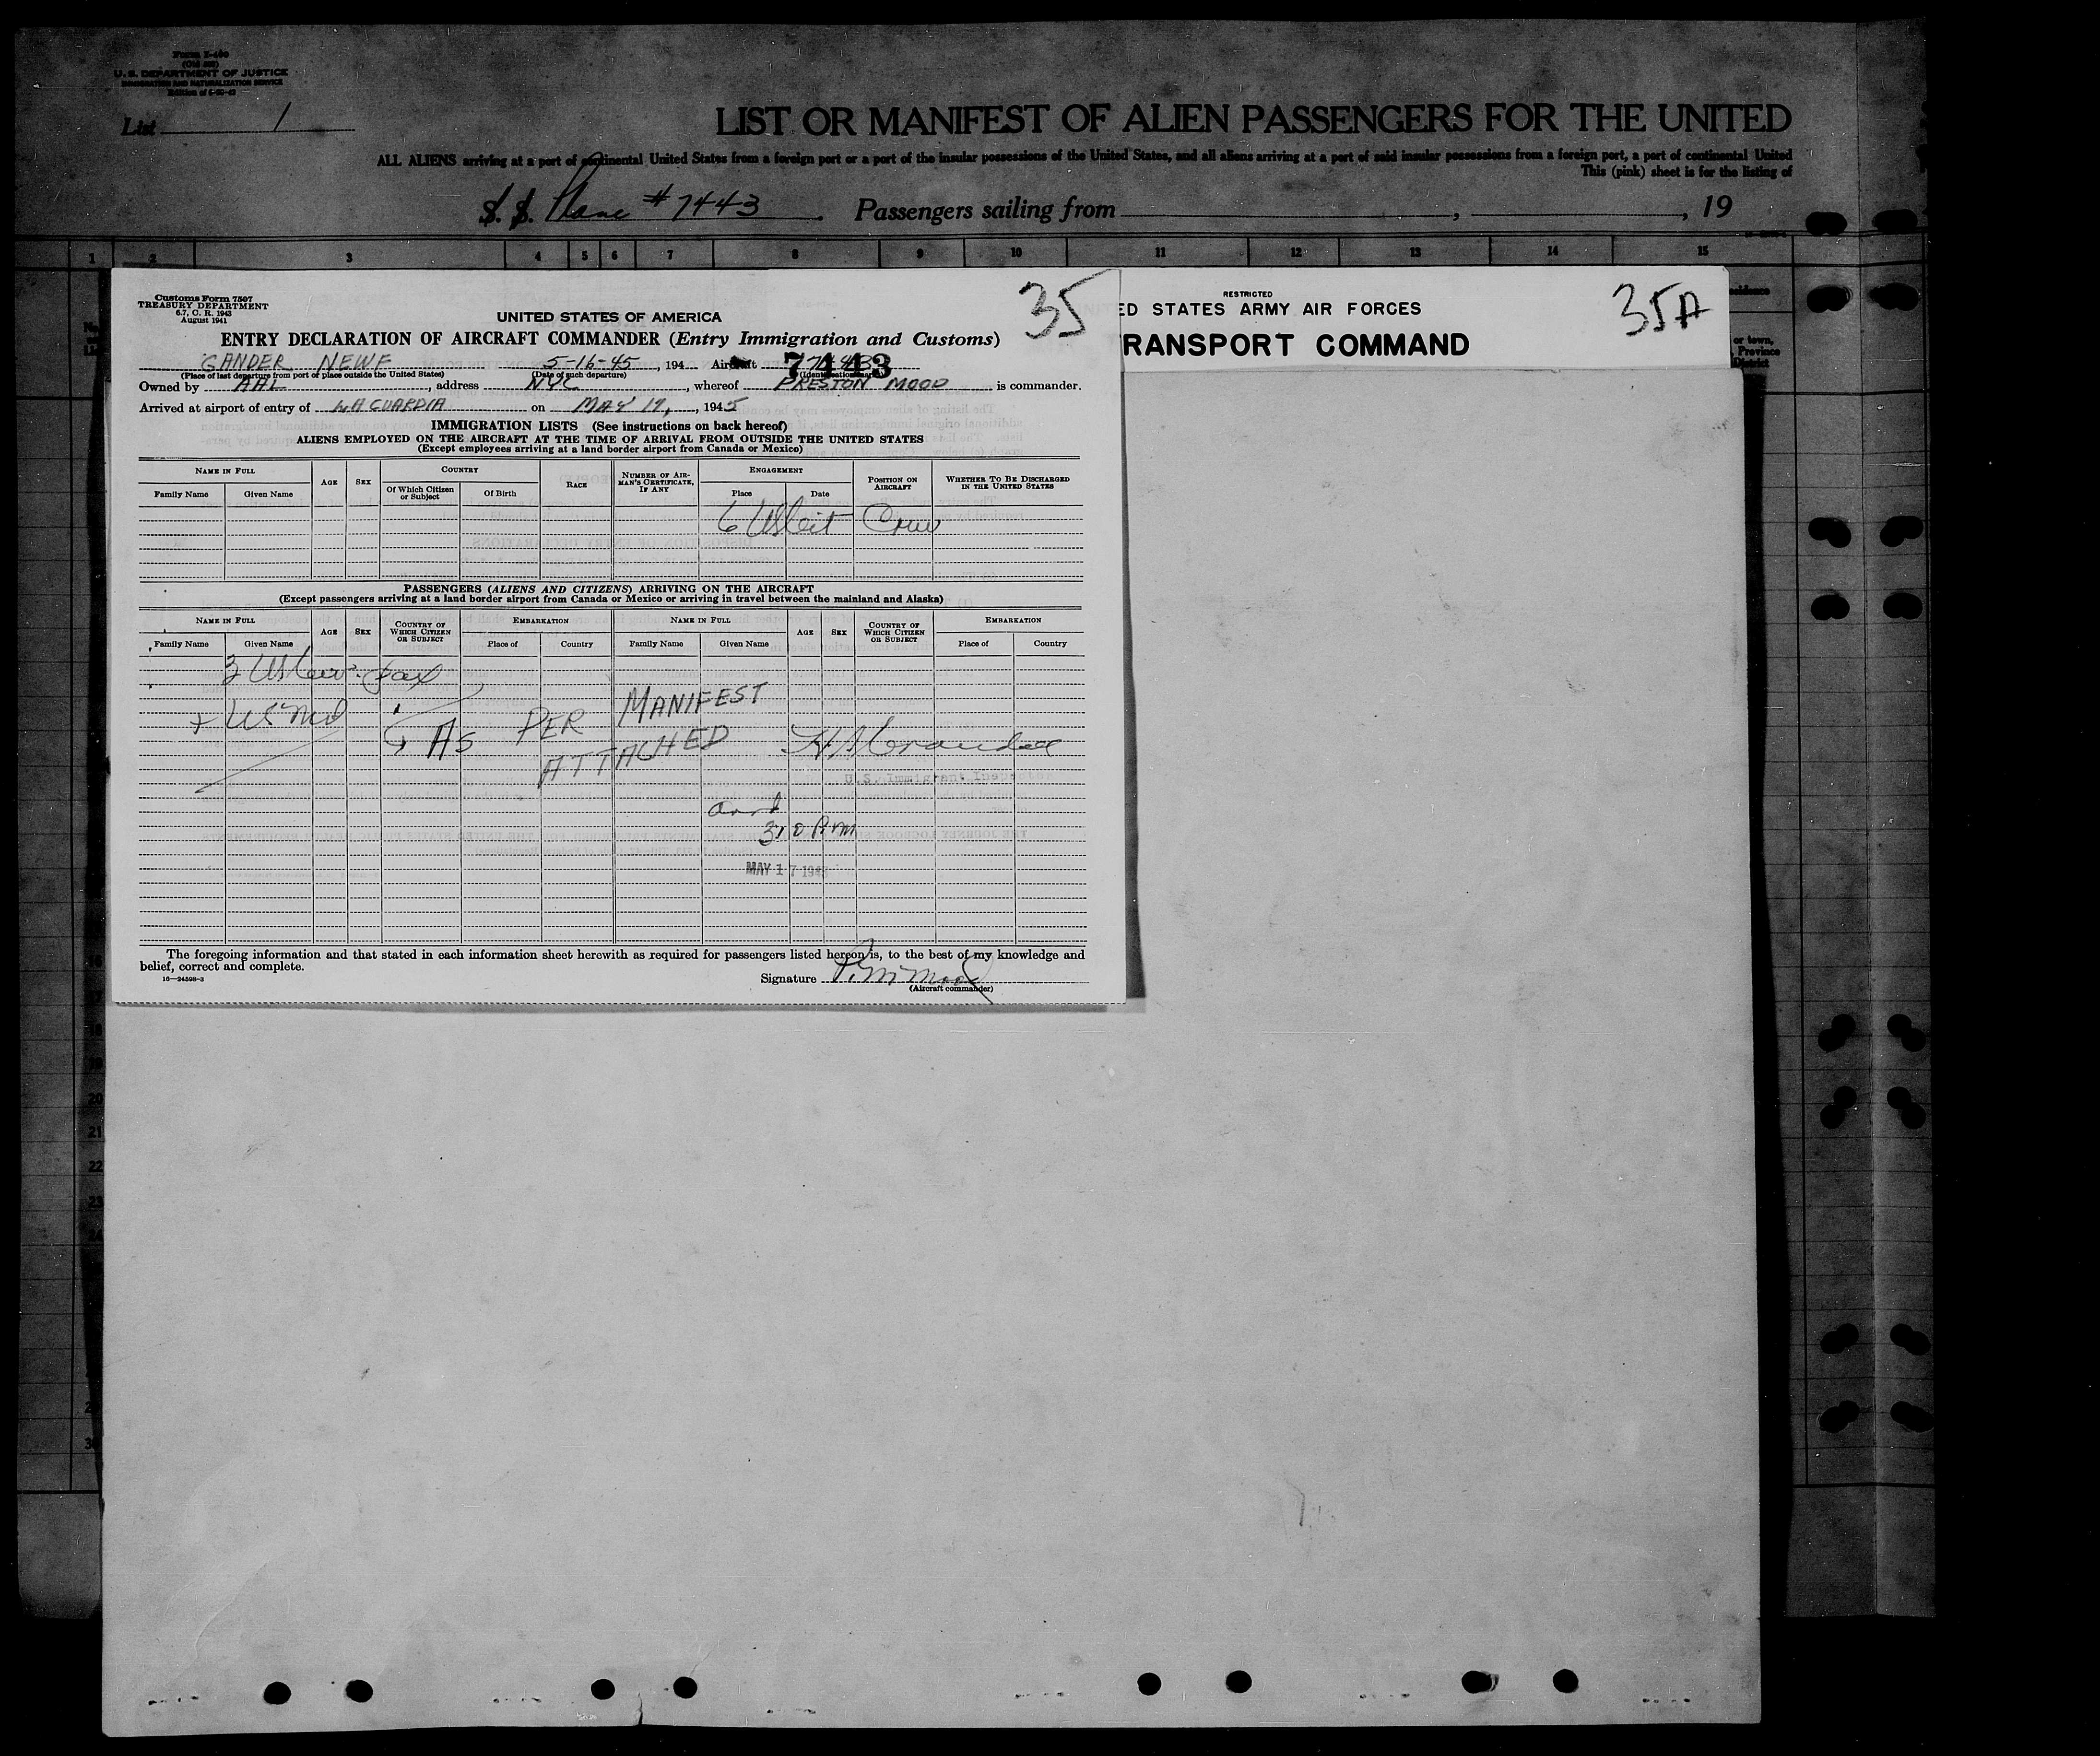 Form I-460
(Old 500)
U. S. DEPARTMENT OF JUSTICE
IMMIGRATION AND NATURALIZATION SERVICE
List 1
LIST OR MANIFEST OF ALIEN PASSENGERS FOR THE UNITED
ALL ALIENS arriving at a port of continental United States from a foreign port or a port of the insular possessions of the United States, and all aliens arriving at a port of said insular possessions from a foreign port, a port of continental United
This (pink) sheet is for the listing of
S. S. Plane # 7443 Passengers sailing from , , 19
1 2 3 4 5 6 7 8 9 10 11 12 13 14 15
35
Customs Form 7507
TREASURY DEPARTMENT
6.7, C. R. 1943
August 1941
UNITED STATES OF AMERICA
ENTRY DECLARATION OF AIRCRAFT COMMANDER (Entry Immigration and Customs)
GANDER NEWF 5-16-45, 194 Aircraft 7443
(Place of last departure from port or place outside the United States) (Date of such departure)
Owned by AAL, address NYC, whereof PRESTON MOOD is commander.
Arrived at airport of entry of LAGUARDIA on MAY 17, 1945
IMMIGRATION LISTS (See instructions on back hereof)
ALIENS EMPLOYED ON THE AIRCRAFT AT THE TIME OF ARRIVAL FROM OUTSIDE THE UNITED STATES
(Except employees arriving at a land border airport from Canada or Mexico)
NAME IN FULL AGE SEX COUNTRY RACE NUMBER OF AIRMAN'S CERTIFICATE, IF ANY ENGAGEMENT POSITION ON AIRCRAFT WHETHER TO BE DISCHARGED IN THE UNITED STATES
Family Name Given Name Of Which Citizen or Subject Of Birth Place Date
6 US Cit Crew
PASSENGERS (ALIENS AND CITIZENS) ARRIVING ON THE AIRCRAFT
(Except passengers arriving at a land border airport from Canada or Mexico or arriving in travel between the mainland and Alaska)
NAME IN FULL AGE SEX COUNTRY OF WHICH CITIZEN OR SUBJECT EMBARKATION NAME IN FULL AGE SEX COUNTRY OF WHICH CITIZEN OR SUBJECT EMBARKATION
Family Name Given Name Place of Country Family Name Given Name Place of Country
AS PER MANIFEST
ATTACHED
U.S. Immigrant Inspector
arrd
310 P.m
MAY 17 1945
The foregoing information and that stated in each information sheet herewith as required for passengers listed hereon is, to the best of my knowledge and
belief, correct and complete.
16—24598-3
Signature P. M. Mood
(Aircraft commander)
RESTRICTED
ED STATES ARMY AIR FORCES
RANSPORT COMMAND
35A
or town,
Province
District
20
21
22
23